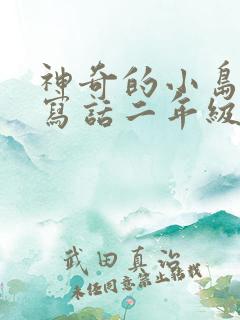 神奇的小島
寫話二年級
武田真治
未经同意禁止转载